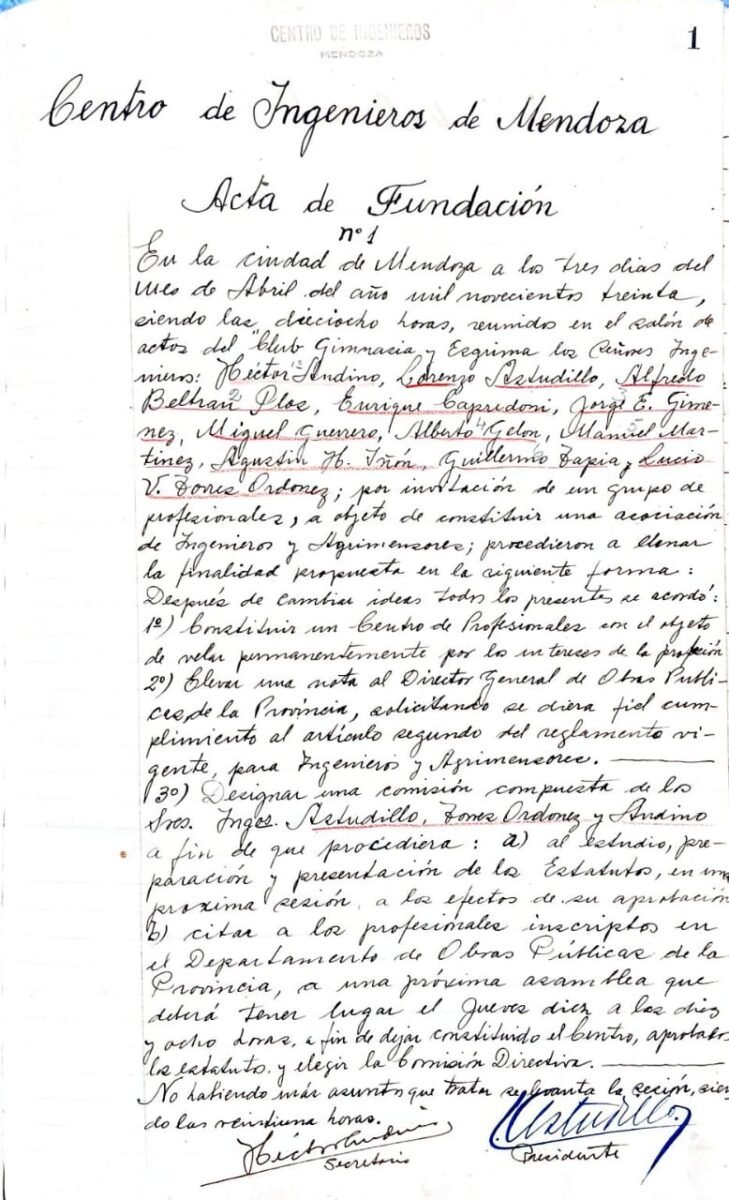 CENTRO DE INGENIEROS
MENDOZA
1
Centro de Ingenieros de Mendoza
Acta de Fundación
nº 1
En la ciudad de Mendoza a los tres dias del
mes de Abril del año mil novecientos treinta,
siendo las dieciocho horas, reunidos en el salón de
actos del "Club Gimnasia y Esgrima los Señores Inge-
nieros: Héctor Andino, Lorenzo Astudillo, Alfredo
Beltran Plos, Enrique Capredoni, Jorge E. Gime-
nez, Miguel Guerrero, Alberto Gelon, Manuel Mar-
tinez, Agustin H. Iñón, Guillermo Tapia y Lucio
V. Torres Ordonez; por invitación de un grupo de
profesionales, a objeto de constituir una asociación
de Ingenieros y Agrimensores; procedieron a llenar
la finalidad propuesta en la siguiente forma:
Después de cambiar ideas todos los presentes se acordó:
1º) Constituir un Centro de Profesionales con el objeto
de velar permanentemente por los intereses de la profesión
2º) Elevar una nota al Director General de Obras Publi-
cas, de la Provincia, solicitando se diera fiel cum-
plimiento al artículo segundo del reglamento vi-
gente, para Ingenieros y Agrimensores.
3º) Designar una comisión compuesta de los
Sres. Ingos. Astudillo, Torres Ordonez y Andino
a fin de que procediera: a) al estudio, pre-
paración y presentación de los Estatutos, en una
proxima sesión, a los efectos de su aprobación
b) citar a los profesionales inscriptos en
el Departamento de Obras Públicas de la
Provincia, a una próxima asamblea que
deberá tener lugar el Jueves diez a las diez
y ocho horas, a fin de dejar constituido el Centro, aprobados
los estatutos y elegir la Comisión Directiva.
No habiendo más asuntos que tratar se levanta la seción, sien-
do las veintiuna horas.
Héctor Andino
Secretario
L. Astudillo
Presidente